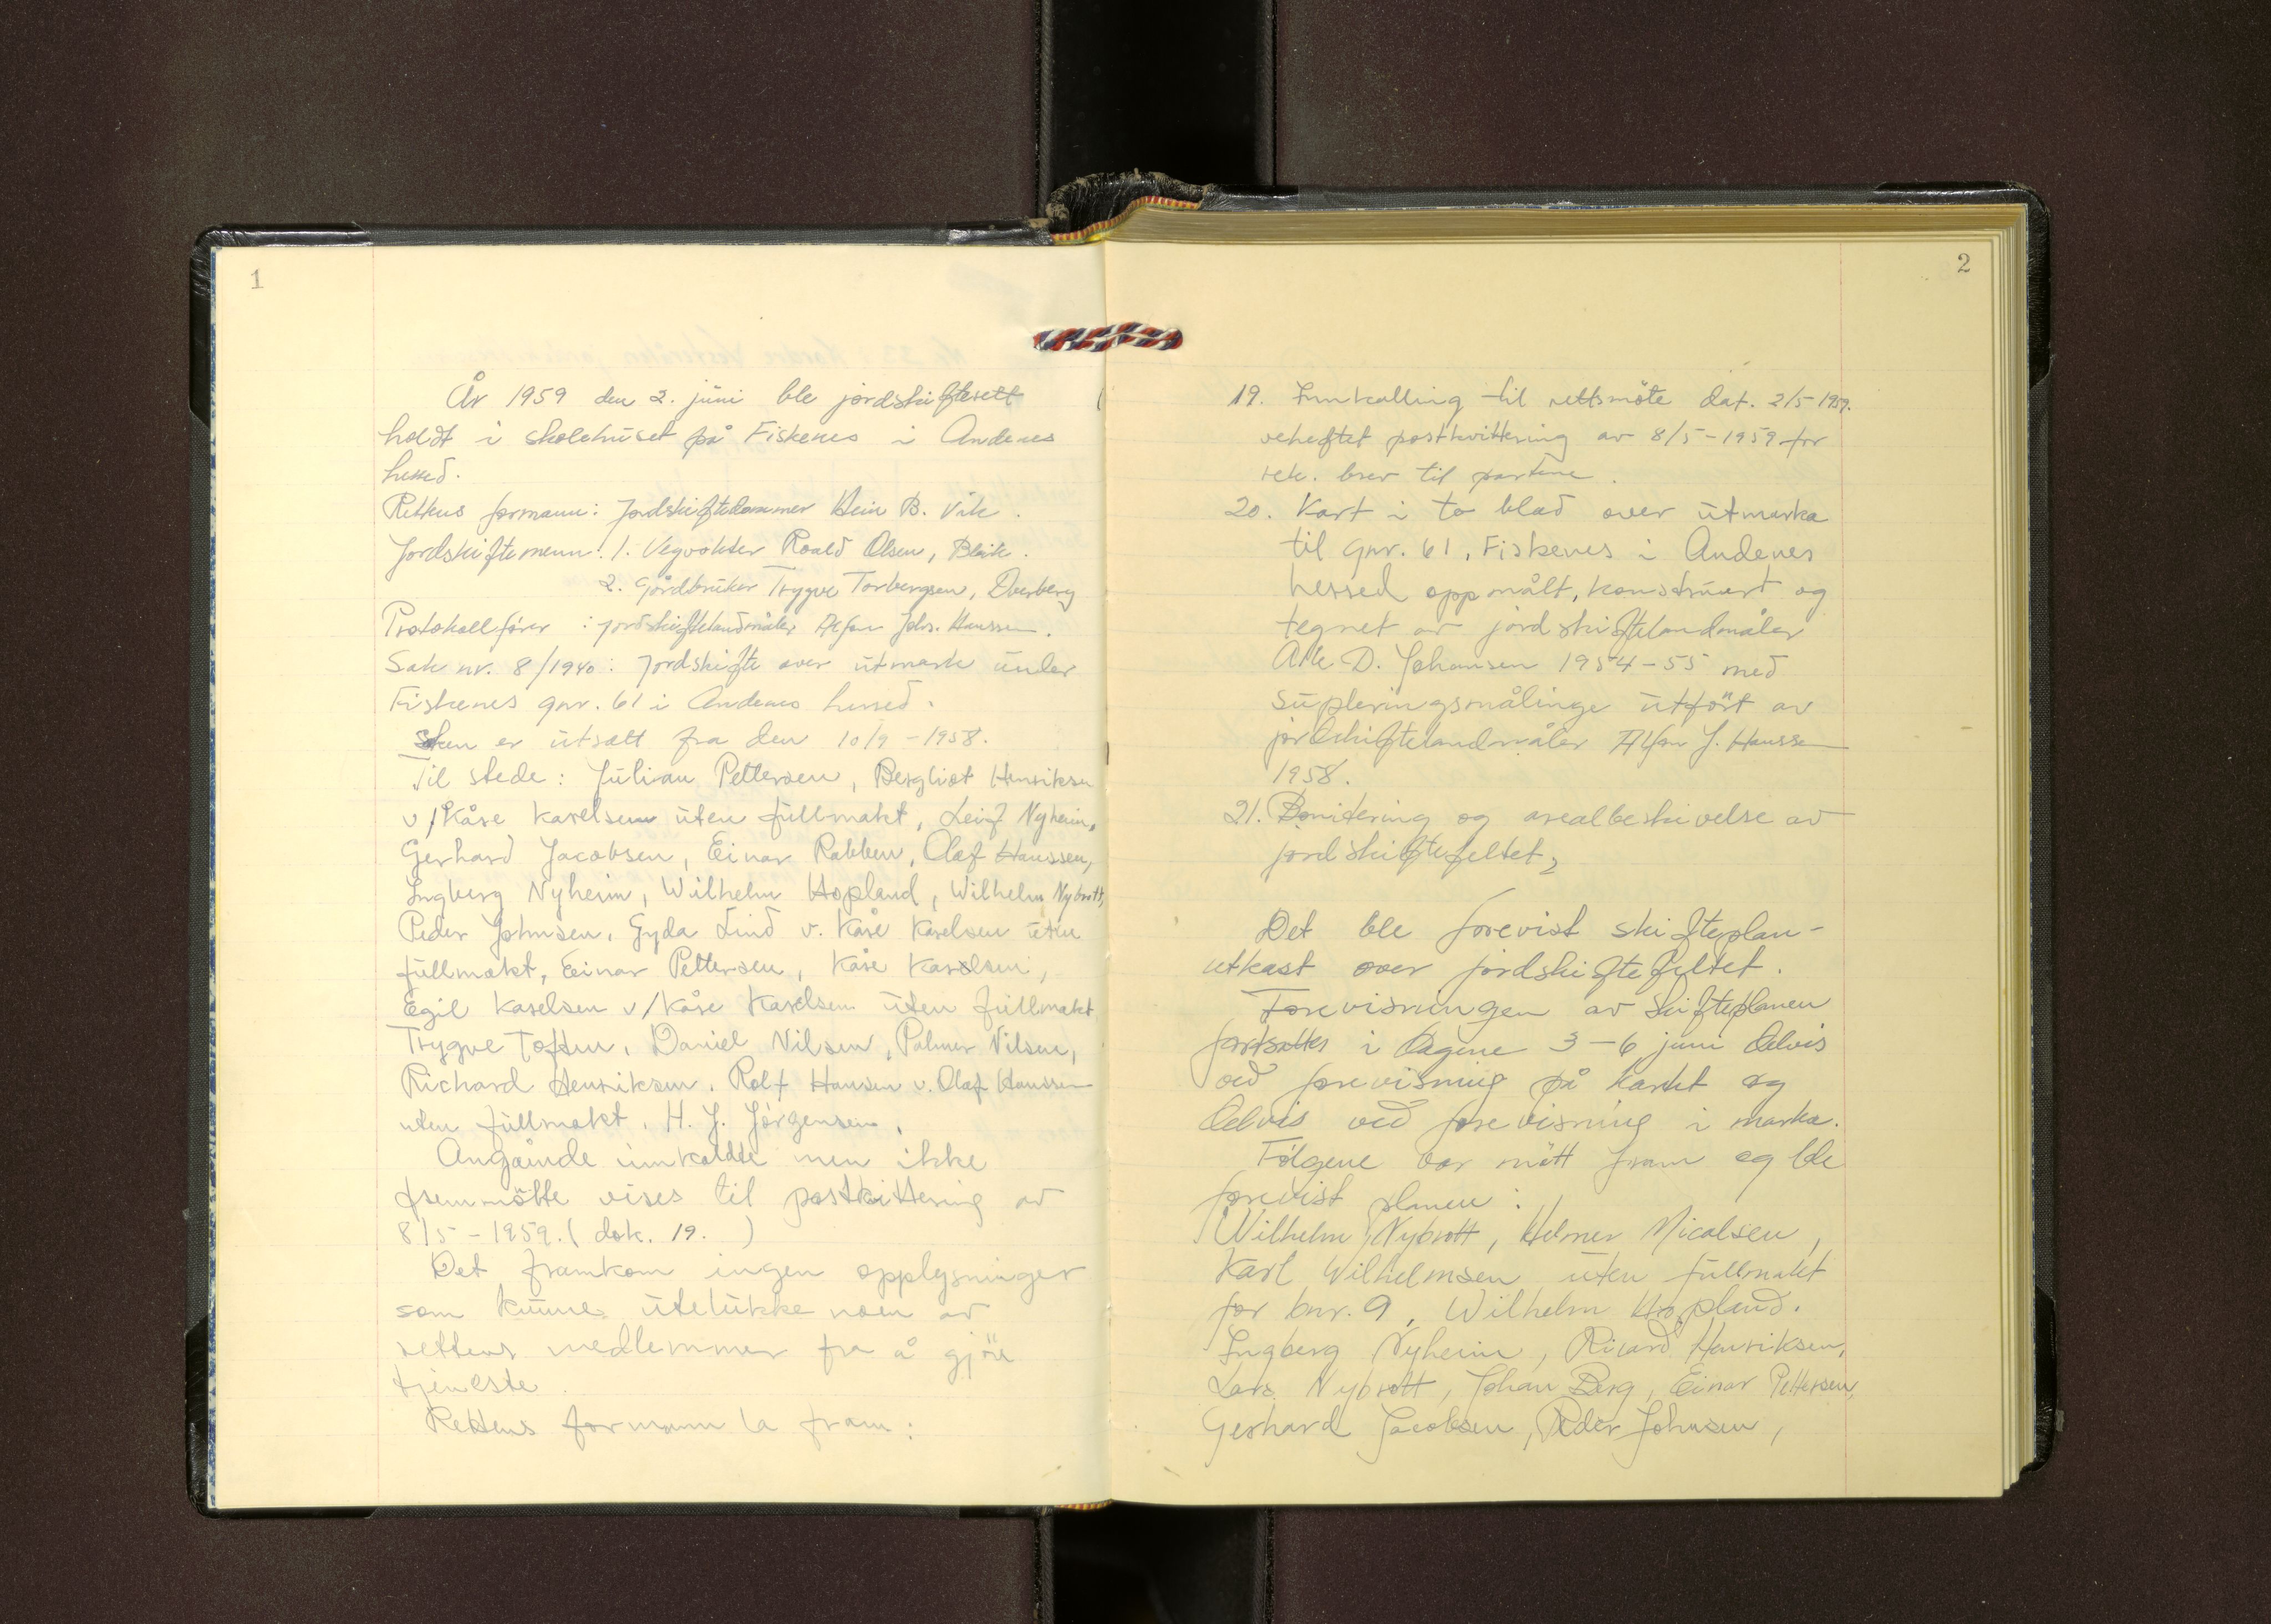 1
År 1959 den 2. juni ble jordskifterett
holdt i skolehuset på Fiskenes i Andenes
herred.
Rettens formann: Jordskiftedommer Hein B. Vik.
Jordskiftemenn: 1. Vegvokter Roald Olsen, Bleik.
2. Gårdbruker Trygve Torbergsen, Dverberg
Protokollfører : jordskiftelandmåler Alfon Johs. Hanssen.
Sak nr. 8/1940: Jordskifte over utmark under
Fiskenes gnr. 61 i Andenes herred.
Saken er utsatt fra den 10/9 - 1958.
Til stede: Julian Pettersen, Bergliot Henriksen
v/Kåre Karelsen uten fullmakt, Leif Nyheim,
Gerhard Jacobsen, Einar Rabben, Olaf Hanssen,
Ingberg Nyheim, Wilhelm Hopland, Wilhelm Nybrott,
Peder Johnsen, Gyda Lind v. Kåre Karelsen uten
fullmakt, Einar Pettersen, Kåre Karelsen,
Egil Karelsen v/Kåre Karelsen uten fullmakt
Trygve Toften, Daniel Nilsen, Palmer Nilsen,
Richard Henriksen, Rolf Hansen v. Olaf Hanssen
uten fullmakt, H. J. Jørgensen.
Angående innkaldte men ikke
fremmötte vises til postkvittering av
8/5 - 1959. ( dok. 19. )
Det framkom ingen opplysninger
som kunne utelukke noen av
rettens medlemmer fra å gjöre
tjeneste.
Rettens formann la fram:
2
19. Innkalling til rettsmöte dat. 2/5-1959.
veheftet postkvittering av 8/5-1959 for
rek. brev til partene.
20. Kart i to blad over utmarka
til gnr. 61, Fiskenes i Andenes
herred oppmålt, konstruert og
tegnet av jordskiftelandmåler
Atle D. Johansen 1954-55 med
supleringsmålinge utfört av
jordskiftelandmåler Alfon J. Hanssen
1958.
21. Bonitering og arealbeskivelse av
jordskiftefeltet,
Det ble forevist skifteplan-
utkast over jordskiftefeltet.
Forevisningen av skifteplanen
fortsattes i dagene 3-6 juni delvis
ved forevisning på kartet og
delvis ved forevisning i marka.
Fölgene var mött fram og ble
forevist planen:
Wilhelm Nybrott, Helmer Nicolsen,
Karl Wilhelmsen uten fullmakt
for bnr. 9, Wilhelm Hopland.
Ingberg Nyheim, Ricard Henriksen,
Lars Nybrott, Johan Berg, Einar Pettersen,
Gerhard Jacobsen, Peder Johnsen,